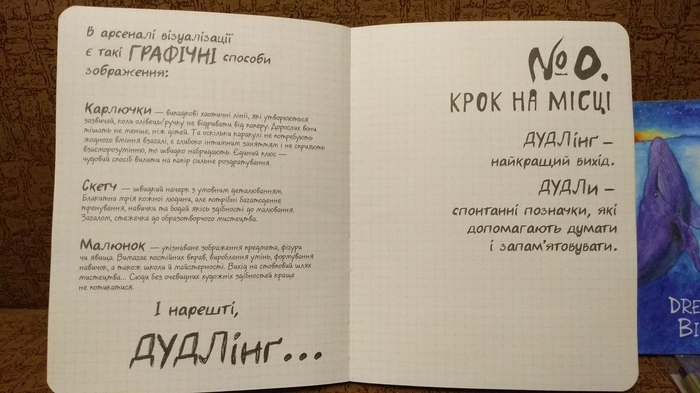 В арсеналі візуалізації
є такі ГРАФІЧНІ способи
зображення:
Карлючки — випадкові хаотичні лінії, які утворюються
зазвичай, коли олівець/ручку не відривати від паперу. Дорослих вони
тішать не менше, ніж дітей. Та оскільки каракулі не потребують
жодного вміння взагалі, є глибоко інтимним заняттям і не сприяють
взаєморозумінню, то швидко набридають. Єдиний плюс —
чудовий спосіб вилити на папір сильне роздратування.
Скетч — швидкий начерк з умовним деталюванням.
Блакитна мрія кожної людини, але потрібні багатоденне
тренування, навички та бодай якісь здібності до малювання.
Загалом, стежечка до образотворчого мистецтва.
Малюнок — упізнаване зображення предмета, фігури
чи явища. Вимагає постійних вправ, вироблення умінь, формування
навичок, а також школи й майстерності. Вихід на стовповий шлях
мистецтва... Сюди без очевидних художніх здібностей краще
не потикатися.
І нарешті,
ДУДЛінґ...
№0.
КРОК НА МІСЦІ
ДУДЛінґ —
найкращий вихід.
ДУДЛи —
спонтанні позначки, які
допомагають думати
і запам'ятовувати.
DRE
BI